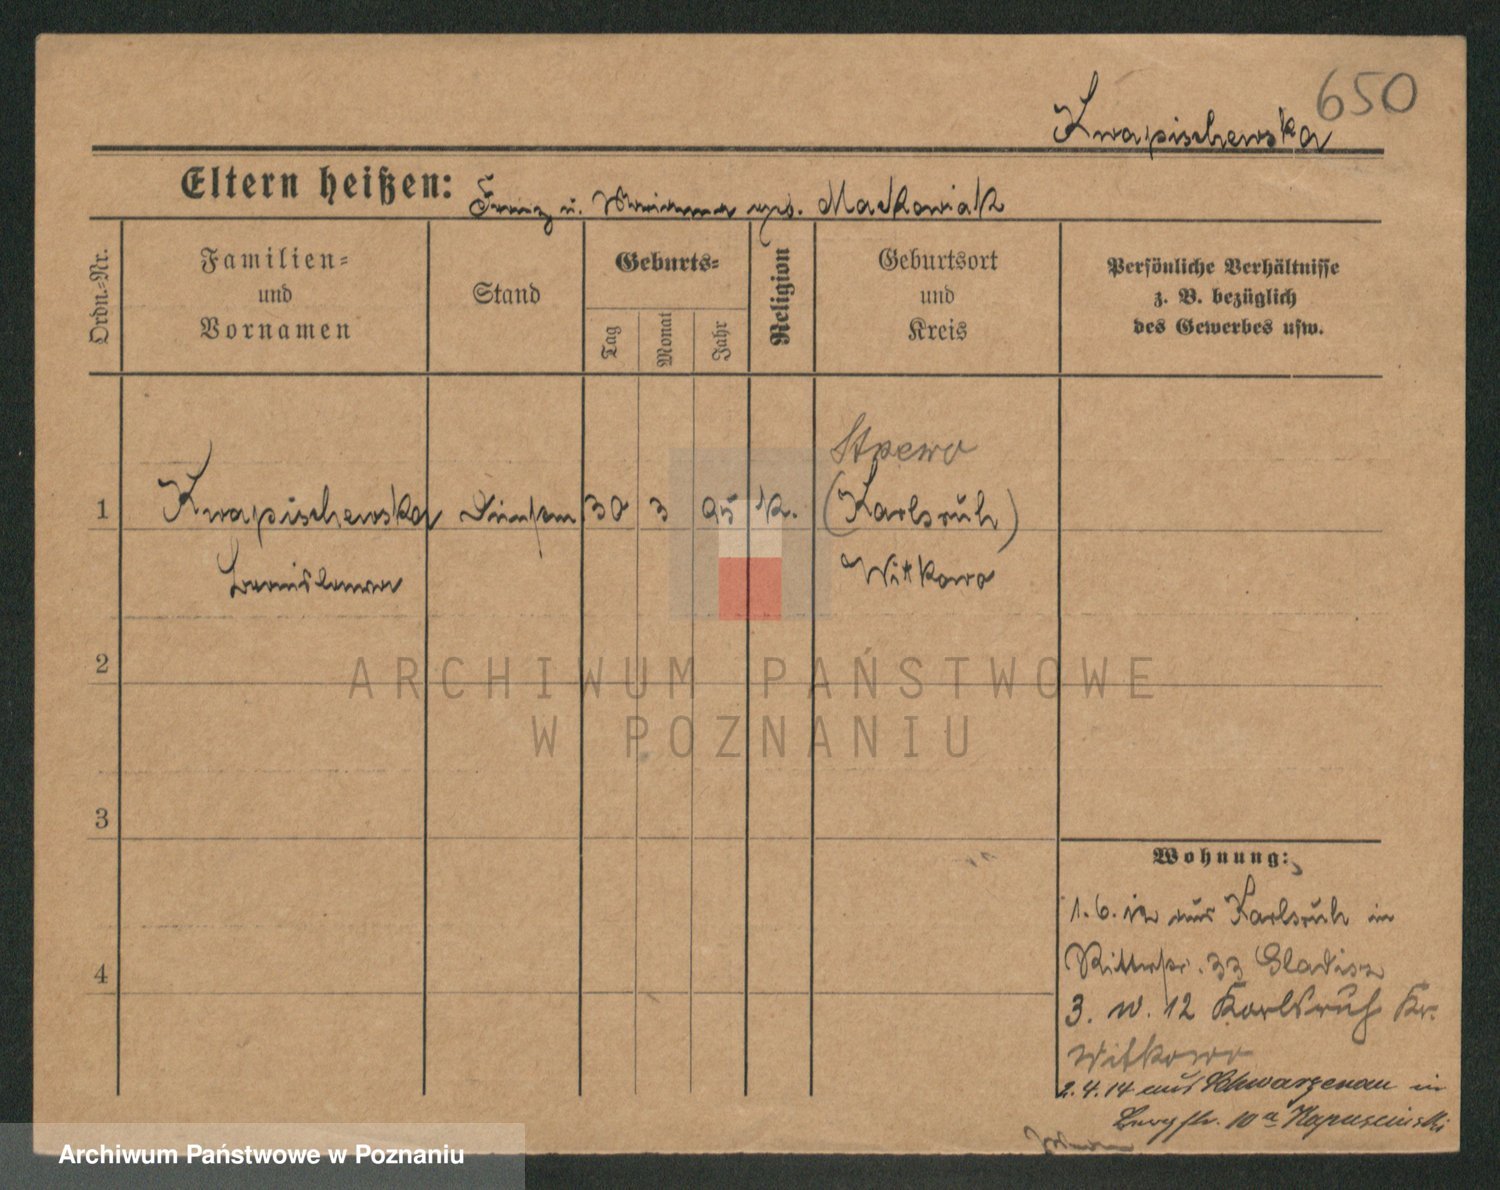 650
Kwapischewska
Eltern heißen: Franz u. geb. Maćkowiak
Ordn.=Nr.
Familien=
und
Vornamen
Stand
Geburts=
Tag
Monat
Jahr
Religion
Geburtsort
und
Kreis
Persönliche Verhältnisse
z. B. bezüglich
des Gewerbes usw.
1
Kwapischewska 30 3 95 k.
Bronislawa
(Karlsruh)
Witkowo
2
3
4
Wohnung:
1. 6. 12 aus Karlsruh in
Ritterstr. 33
3. 12 Karlsruh Kr.
Witkowo
2.4.14 aus Schwarzenau in
Bergstr. 10a Kapuscinski
ARCHIWUM PAŃSTWOWE
W POZNANIU
Archiwum Państwowe w Poznaniu